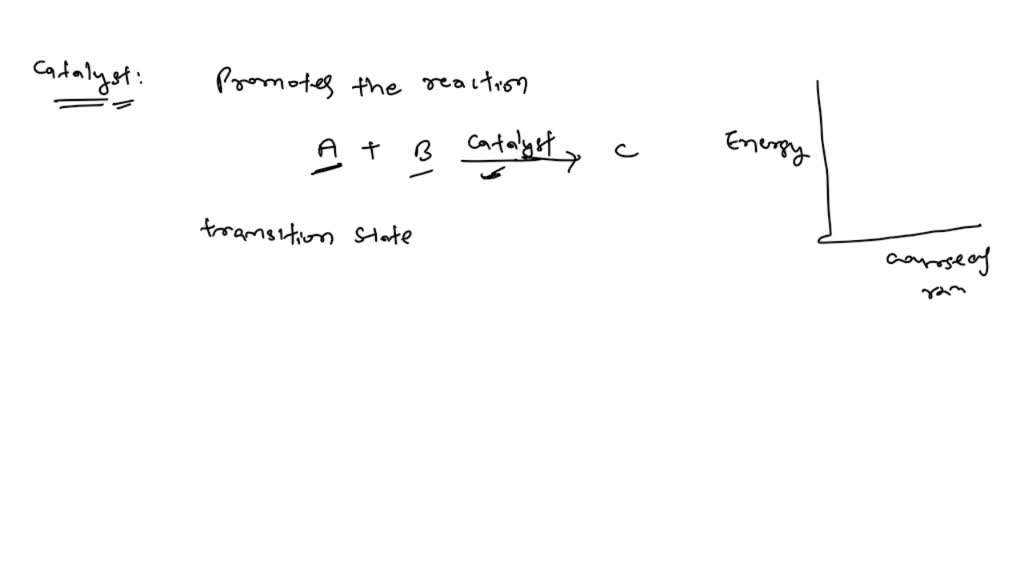 Catalyst: Promotes the reaction
A + B catalyst → C
Energy
transition state
course of
rxn